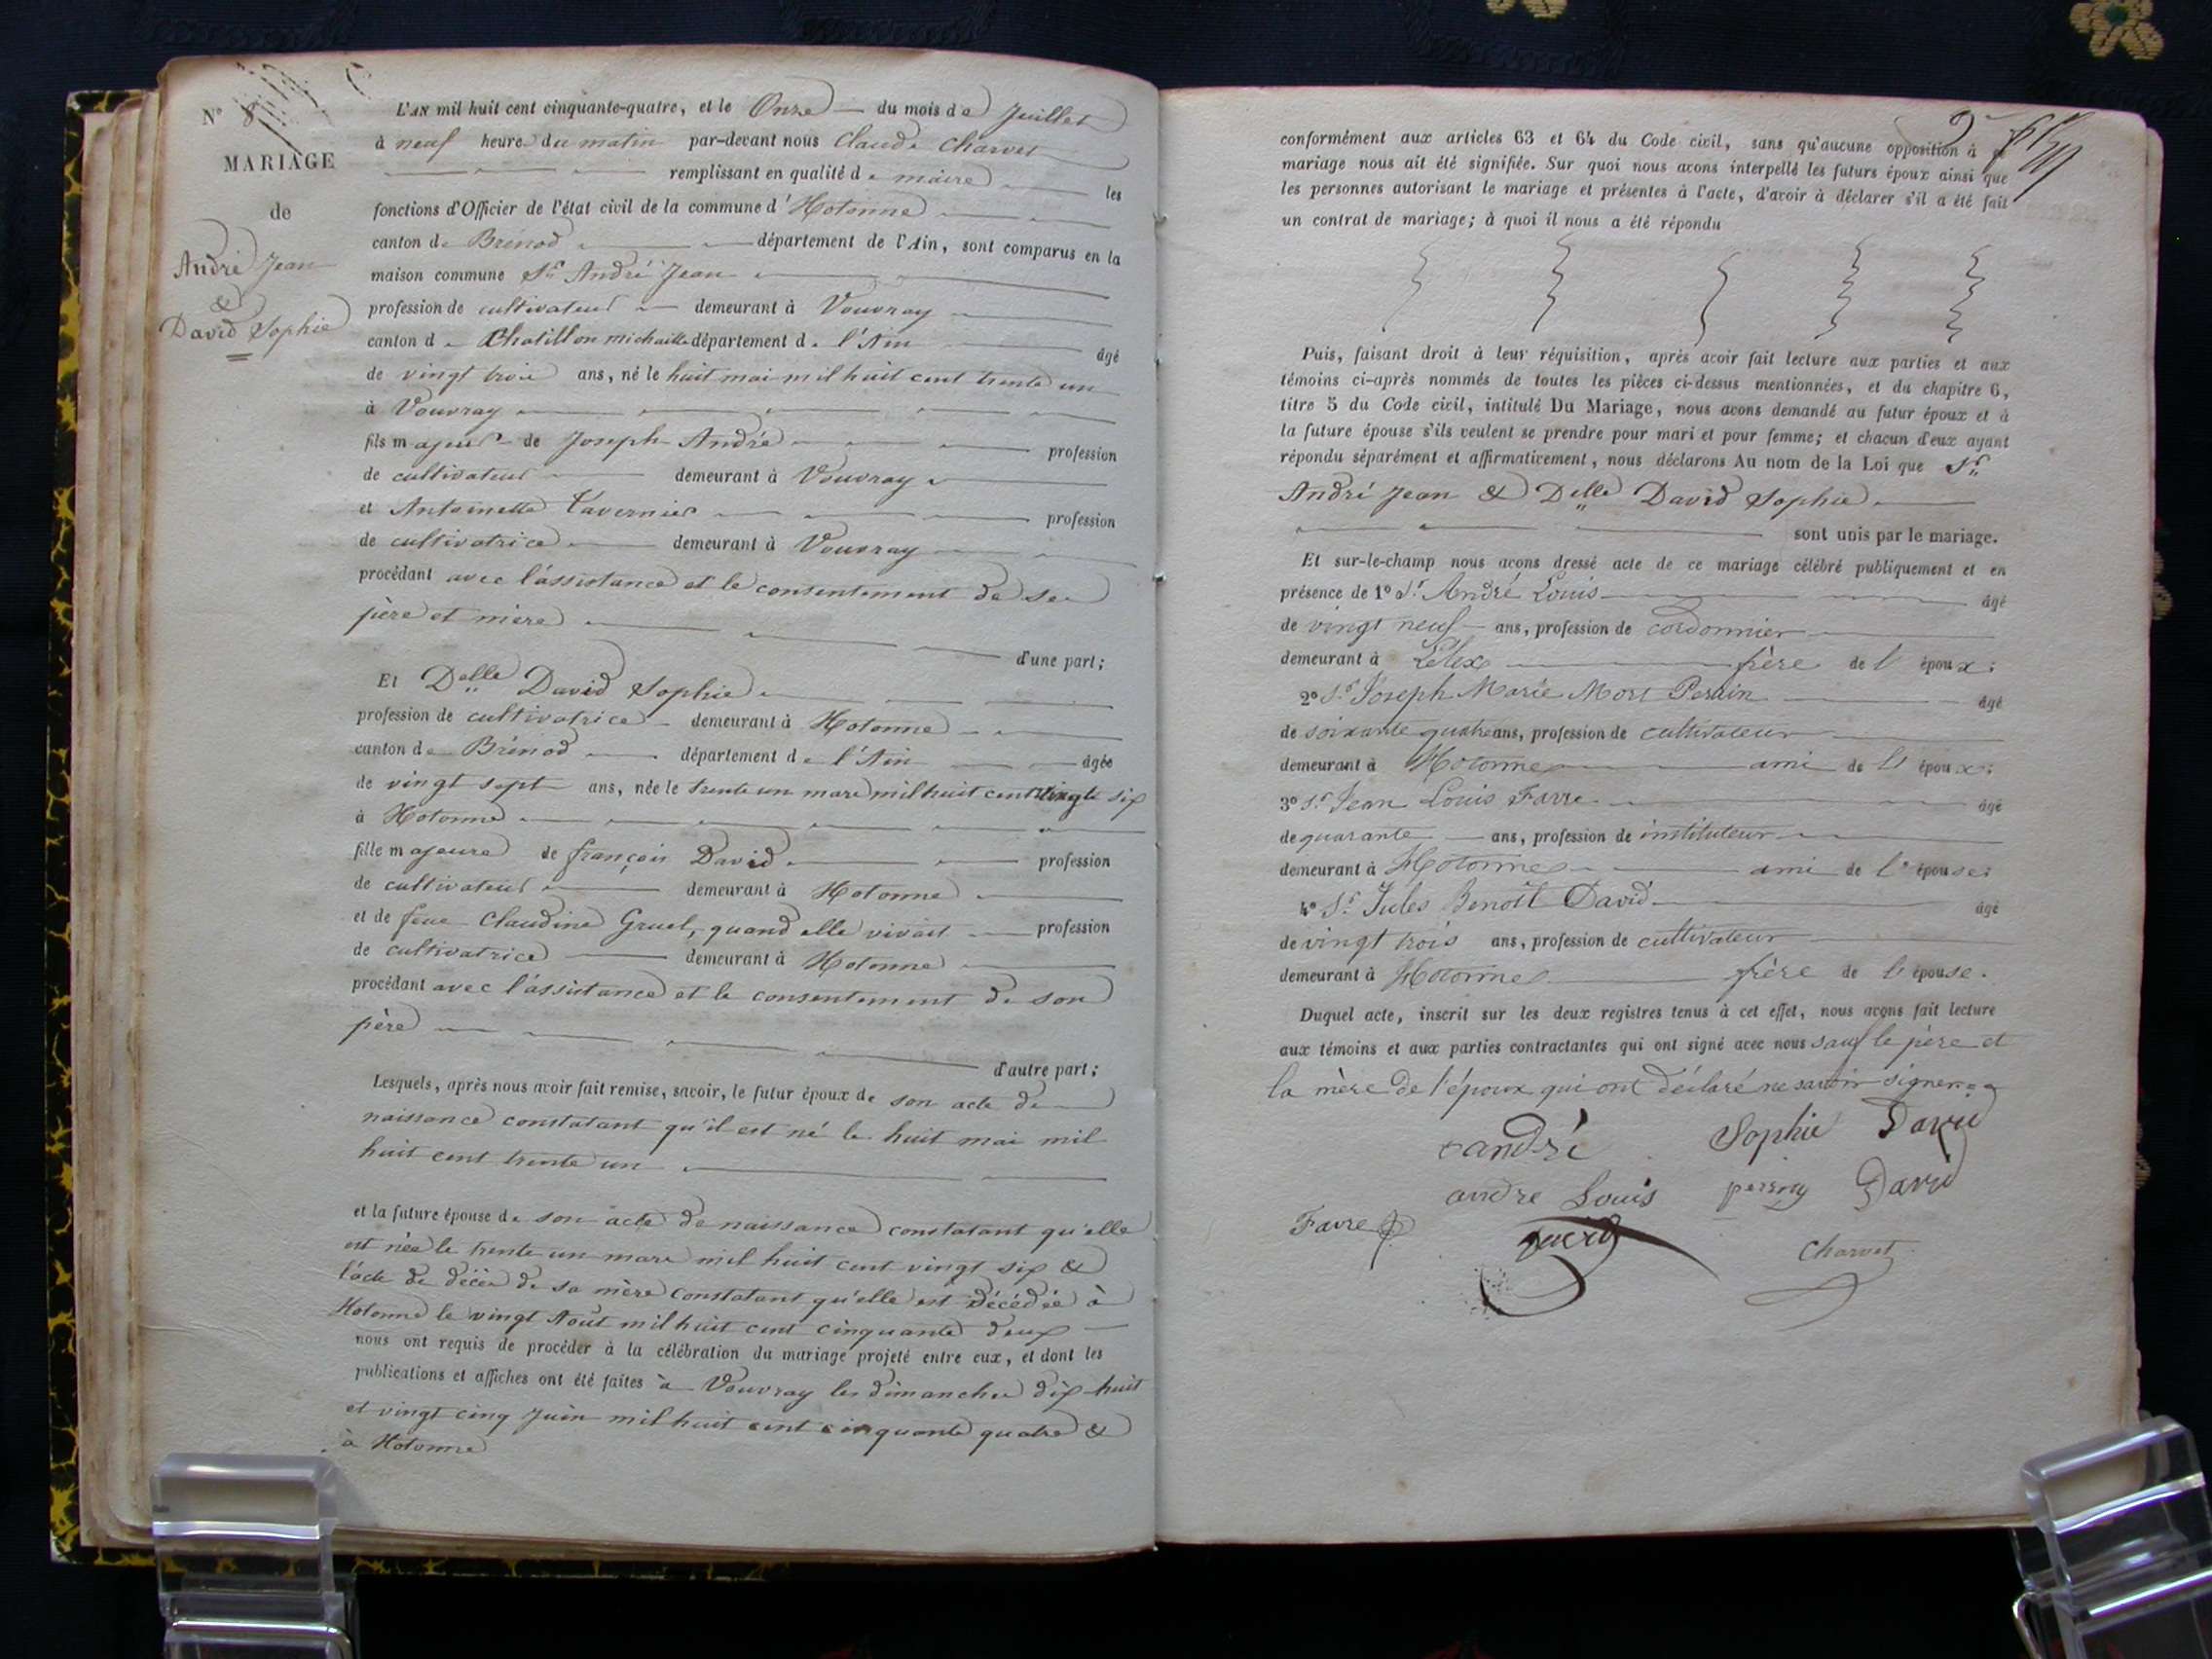 N° 8
MARIAGE
de
André Jean
&
David Sophie
L'AN mil huit cent cinquante-quatre, et le Onze du mois de Juillet
à neuf heure du matin par-devant nous Claude Charvet
remplissant en qualité de maire les
fonctions d'Officier de l'état civil de la commune d'Hotonne
canton de Brénod département de l'Ain, sont comparus en la
maison commune Sr André Jean
profession de cultivateur demeurant à Vouvray
canton de Chatillon michaille département de l'Ain âgé
de vingt trois ans, né le huit mai mil huit cent trente un
à Vouvray
fils majeur de Joseph André profession
de cultivateur demeurant à Vouvray
et Antoinette Tavernier profession
de cultivatrice demeurant à Vouvray
procédant avec l'assistance et le consentement de ses
père et mère
d'une part;
Et Delle David Sophie
profession de cultivatrice demeurant à Hotonne
canton de Brénod département de l'Ain âgée
de vingt sept ans, née le trente un mars mil huit cent vingt six
à Hotonne
fille majeure de françois David profession
de cultivateur demeurant à Hotonne
et de feue Claudine Gruel, quand elle vivait profession
de cultivatrice demeurant à Hotonne
procédant avec l'assistance et le consentement de son
père
d'autre part;
Lesquels, après nous avoir fait remise, savoir, le futur époux de son acte de
naissance constatant qu'il est né le huit mai mil
huit cent trente un
et la future épouse de son acte de naissance constatant qu'elle
est née le trente un mars mil huit cent vingt six &
l'acte de décès de sa mère constatant qu'elle est décédée à
Hotonne le vingt Août mil huit cent cinquante deux
nous ont requis de procéder à la célébration du mariage projeté entre eux, et dont les
publications et affiches ont été faites à Vouvray les dimanches dix huit
et vingt cinq Juin mil huit cent cinquante quatre &
à Hotonne
conformément aux articles 63 et 64 du Code civil, sans qu'aucune opposition à ce
mariage nous ait été signifiée. Sur quoi nous avons interpellé les futurs époux ainsi que
les personnes autorisant le mariage et présentes à l'acte, d'avoir à déclarer s'il a été fait
un contrat de mariage; à quoi il nous a été répondu
Puis, faisant droit à leur réquisition, après avoir fait lecture aux parties et aux
témoins ci-après nommés de toutes les pièces ci-dessus mentionnées, et du chapitre 6,
titre 5 du Code civil, intitulé Du Mariage, nous avons demandé au futur époux et à
la future épouse s'ils veulent se prendre pour mari et pour femme; et chacun d'eux ayant
répondu séparément et affirmativement, nous déclarons Au nom de la Loi que Sr
André Jean & Delle David Sophie
sont unis par le mariage.
Et sur-le-champ nous avons dressé acte de ce mariage célébré publiquement et en
présence de 1° Sr André Louis âgé
de vingt neuf ans, profession de cordonnier
demeurant à Lélex frère de l'époux;
2° Sr Joseph Marie Mort Perrin âgé
de soixante quatre ans, profession de cultivateur
demeurant à Hotonne ami de l'époux;
3° Sr Jean Louis Favre âgé
de quarante ans, profession de instituteur
demeurant à Hotonne ami de l'épouse;
4° Sr Jules Benoît David âgé
de vingt trois ans, profession de cultivateur
demeurant à Hotonne frère de l'épouse.
Duquel acte, inscrit sur les deux registres tenus à cet effet, nous avons fait lecture
aux témoins et aux parties contractantes qui ont signé avec nous sauf le père et
la mère de l'époux qui ont déclaré ne savoir signer.
andré Sophie David
andre Louis David
Favre David Charvet